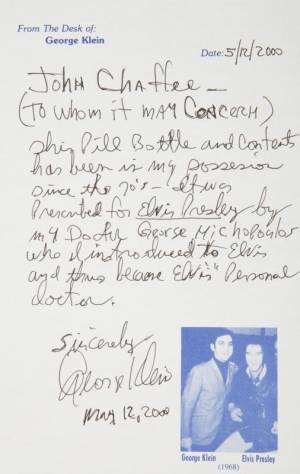 From The Desk of:
George Klein
Date: 5/12/2000
John Chaffee –
(To Whom it MAY CONCERN)
This Pill Bottle and Contents
has been in my possesion
since the 70's – It was
Prescribed for Elvis Presley by
my Doctor George Nichopoulos
who I introduced to Elvis
and thus became Elvis' Personal
doctor.
Sincerely
George Klein
May 12, 2000
George Klein Elvis Presley
(1968)